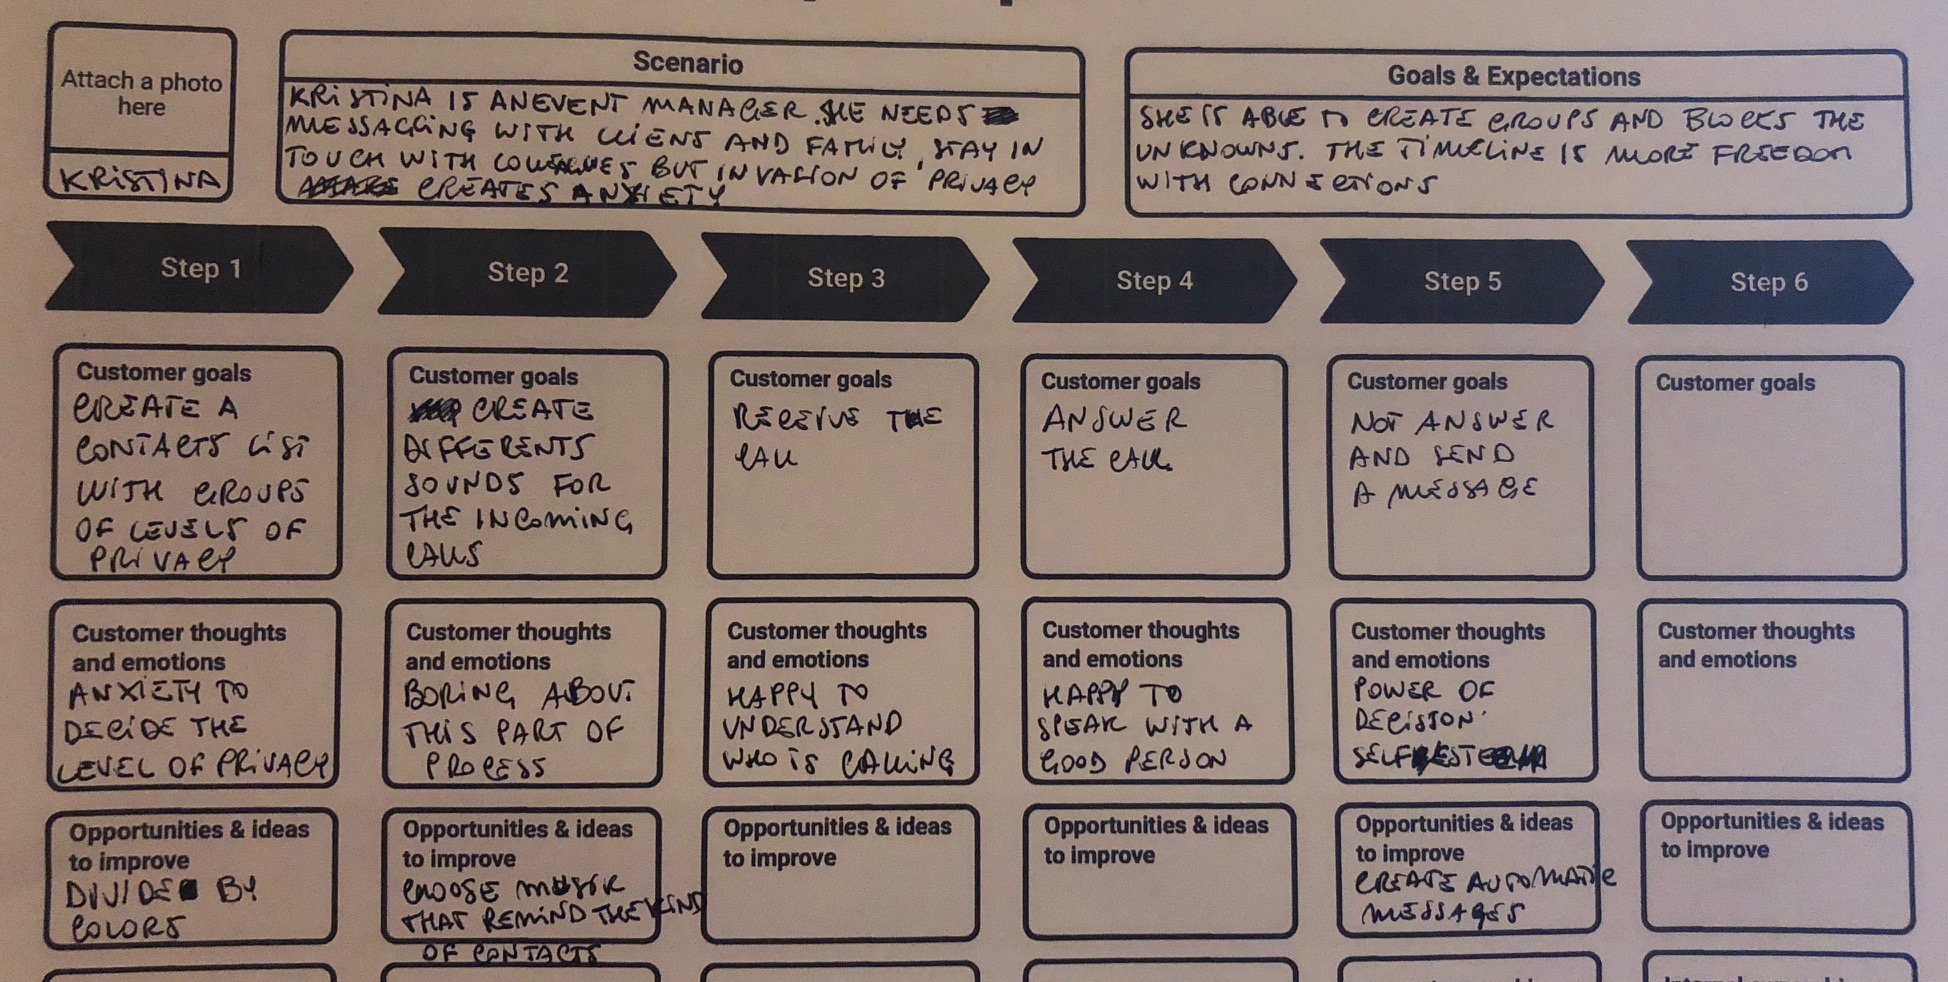 Attach a photo
here
KRISTINA
Scenario
KRISTINA IS AN EVENT MANAGER. SHE NEEDS
MESSAGGING WITH CLIENS AND FAMILY, STAY IN
TOUCH WITH BUT INVASION OF PRIVACY
CREATES ANXIETY
Goals & Expectations
SHE IS ABLE TO CREATE GROUPS AND BLOCKS THE
UNKNOWNS. THE TIMELINE IS MORE FREEDOM
WITH
Step 1
Step 2
Step 3
Step 4
Step 5
Step 6
Customer goals
CREATE A
CONTACTS LIST
WITH GROUPS
OF LEVELS OF
PRIVACY
Customer goals
CREATE
DIFFERENTS
SOUNDS FOR
THE INCOMING
CALLS
Customer goals
RECEIVE THE
CALL
Customer goals
ANSWER
THE CALL
Customer goals
NOT ANSWER
AND SEND
A MESSAGE
Customer goals
Customer thoughts
and emotions
ANXIETY TO
DECIDE THE
LEVEL OF PRIVACY
Customer thoughts
and emotions
BORING ABOUT
THIS PART OF
PROCESS
Customer thoughts
and emotions
HAPPY TO
UNDERSTAND
WHO IS CALLING
Customer thoughts
and emotions
HAPPY TO
SPEAK WITH A
GOOD PERSON
Customer thoughts
and emotions
POWER OF
DECISION
Customer thoughts
and emotions
Opportunities & ideas
to improve
DIVIDE BY
COLORS
Opportunities & ideas
to improve
CHOOSE MUSIC
THAT REMIND THE KIND
OF CONTACTS
Opportunities & ideas
to improve
Opportunities & ideas
to improve
Opportunities & ideas
to improve
CREATE AUTOMATIC
MESSAGES
Opportunities & ideas
to improve